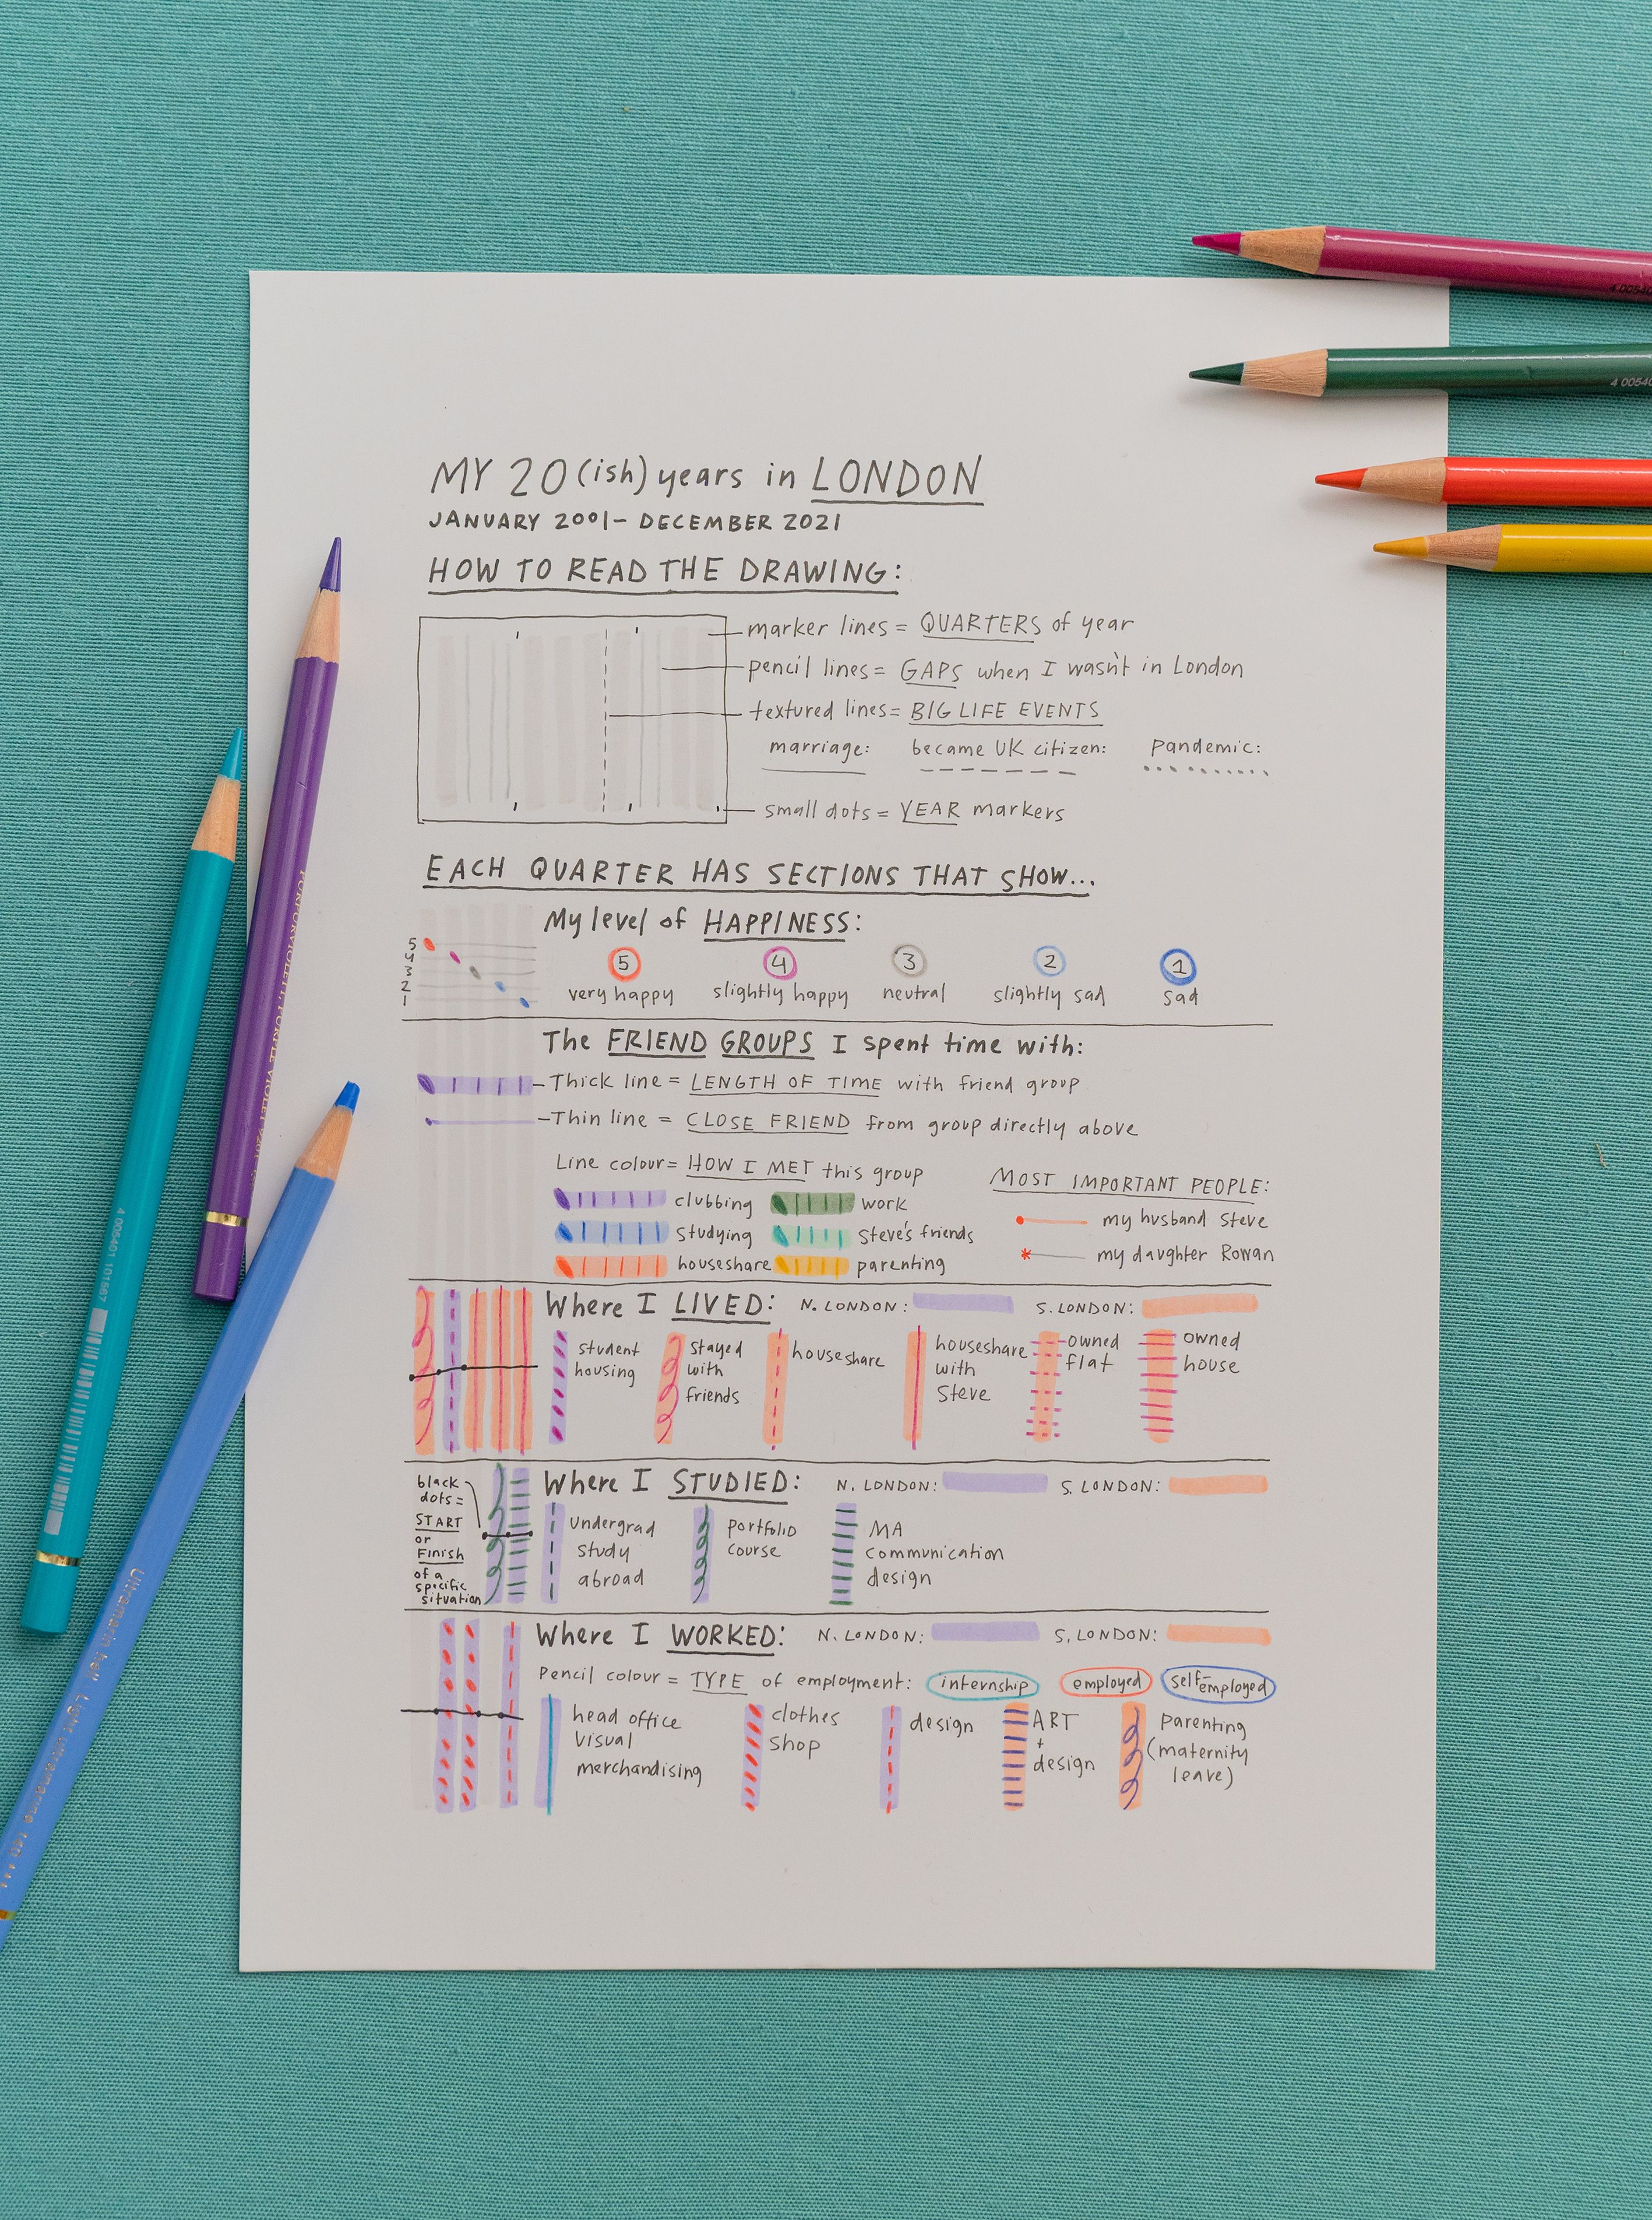 MY 20(ish) years in LONDON
JANUARY 2001- DECEMBER 2021
HOW TO READ THE DRAWING:
marker lines = QUARTERS of year
pencil lines = GAPS when I wasn't in London
textured lines = BIG LIFE EVENTS
marriage: became UK citizen: Pandemic:
small dots = YEAR markers
EACH QUARTER HAS SECTIONS THAT SHOW...
My level of HAPPINESS:
5
4
3
2
1
5 4 3 2 1
very happy slightly happy neutral slightly sad sad
The FRIEND GROUPS I spent time with:
Thick line = LENGTH OF TIME with friend group
Thin line = CLOSE FRIEND from group directly above
Line colour = HOW I MET this group
clubbing work
studying Steve's friends
houseshare parenting
MOST IMPORTANT PEOPLE:
my husband Steve
my daughter Rowan
Where I LIVED: N. LONDON: S. LONDON:
student
housing
stayed
with
friends
houseshare
houseshare
with
Steve
owned
flat
owned
house
black
dots =
START
or
Finish
of a
specific
situation
Where I STUDIED: N. LONDON: S. LONDON:
undergrad
study
abroad
portfolio
course
MA
communication
design
Where I WORKED: N. LONDON: S. LONDON:
Pencil colour = TYPE of employment: internship employed self-employed
head office
visual
merchandising
clothes
shop
design
ART
+
design
parenting
(maternity
leave)
4 005401 101567